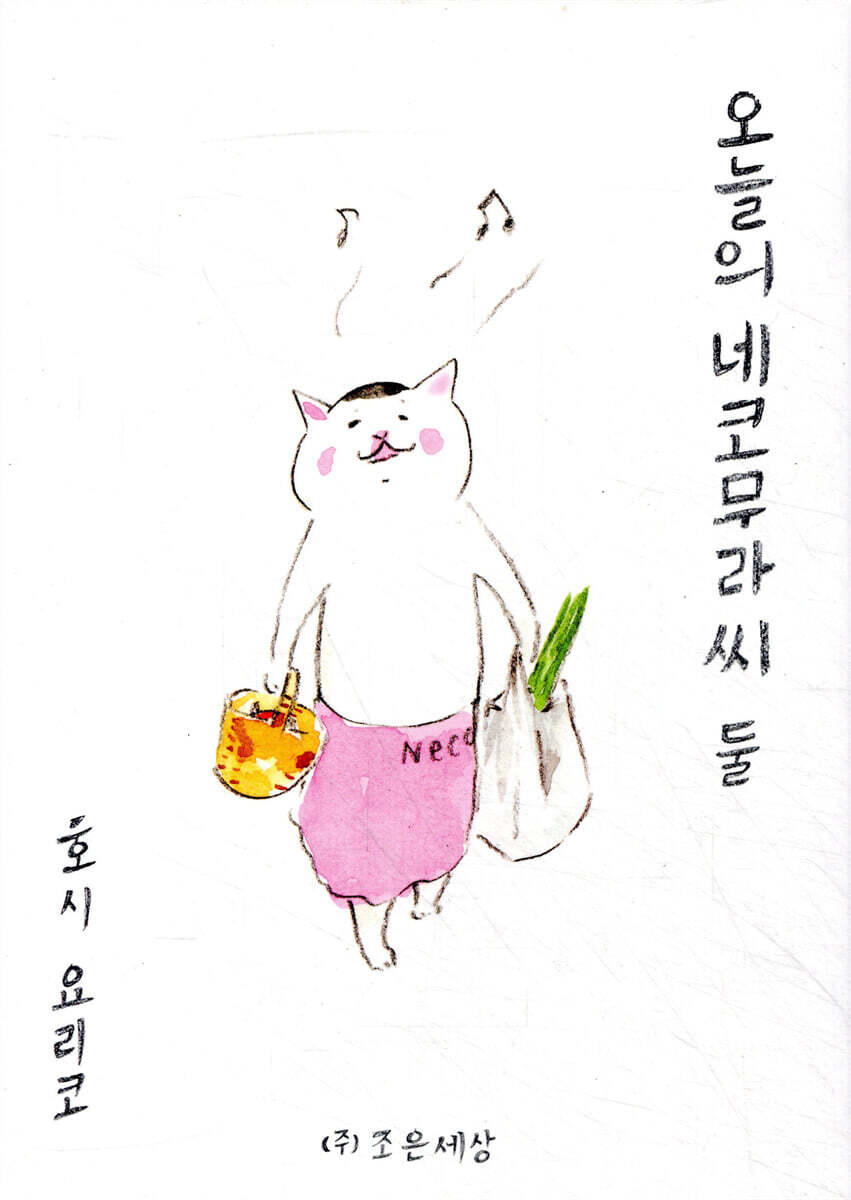 오늘의 네코무라씨 둘
Neco
호시 요리코
(주) 조은세상